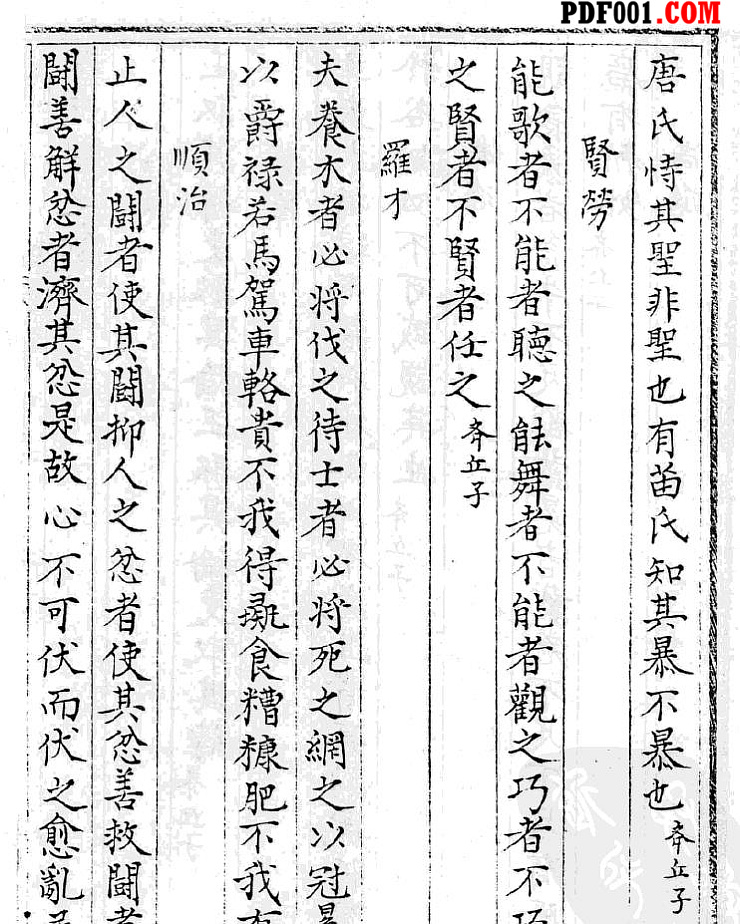 PDF001.COM
唐氏恃其聖非聖也有苗氏知其暴不暴也 齊丘子
賢勞
能歌者不能者聽之能舞者不能者觀之巧者不
之賢者不賢者任之 齊丘子
羅才
夫養木者必將伐之待士者必將死之網之以冠
以爵祿若馬駕車輅貴不我得彘食糟糠肥不我
順治
止人之鬪者使其鬪抑人之忿者使其忿善救鬪者
鬪善解忿者濟其忿是故心不可伏而伏之愈亂